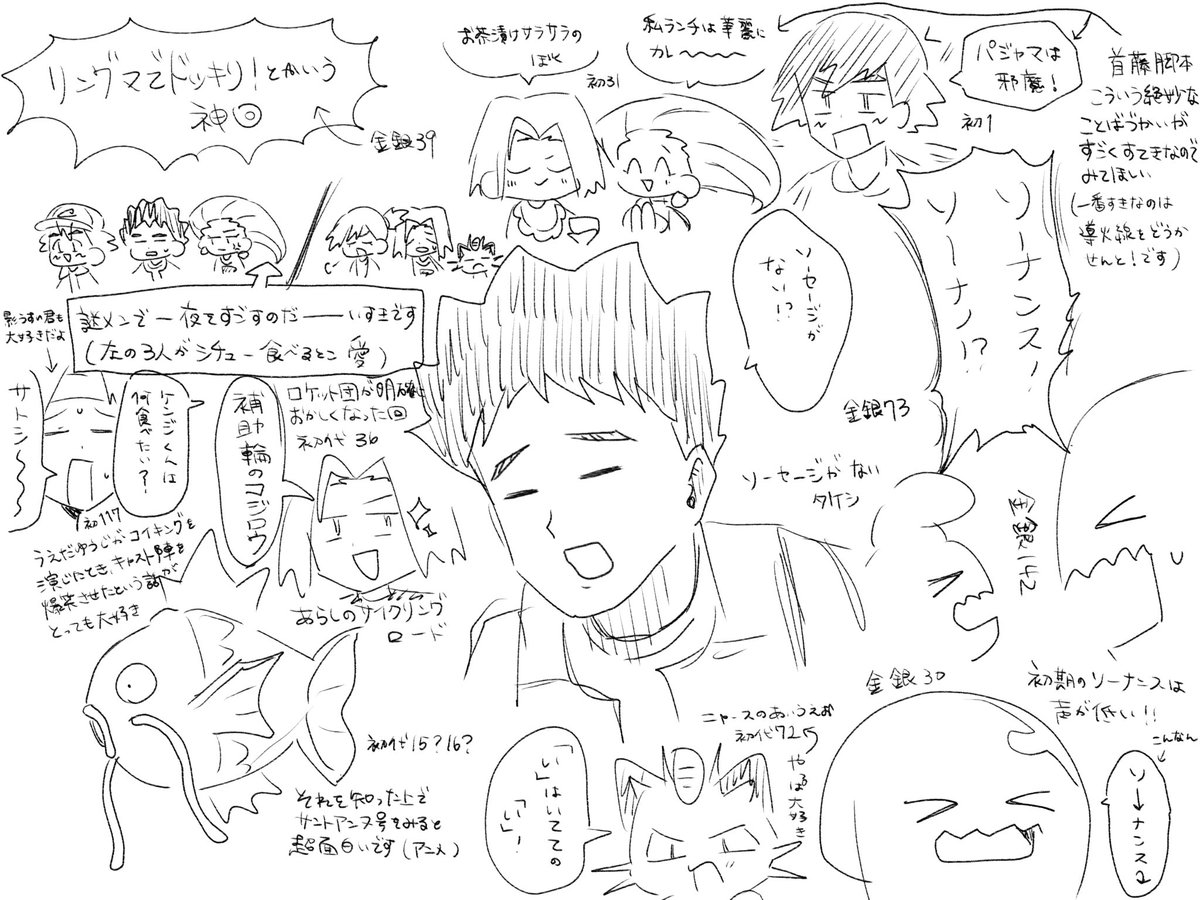 リングマでドッキリ!とかいう
神回
金銀39
お茶漬けサラサラの
ぼく
初31
私ランチは華麗に
カレ〜〜〜〜
パジャマは
邪魔!
初1
首藤脚本
こういう絶妙な
ことばづかいが
すごくすてきなので
みてほしい
(一番すきなのは
導火線をどうか
せんと!です)
謎メンで一夜をすごすのだーーいすきです
(左の3人がシチュー食べるとこ 愛)
影うすい君も
大好きだよ
サトシ〜〜〜
ケンジくんは
何食べたい?
初117
補助輪のコジロウ
ロケット団が明確に
おかしくなった回
初代36
あらしのサイクリング
ロード
ソーセージが
ない!?
金銀73
ソーセージがない
タケシ
ソーナンス!
ソーナノ!?
金銀142
うえだゆうじがコイキングを
演じたとき、キャスト陣を
爆笑させたという話が
とっても大好き
初代15?16?
それを知った上で
サントアンヌ号をみると
超面白いです(アニメ)
ニャースのあいうえお
初代72
やっぱ大好き
「い」はいてての
「い」!
金銀30
初期のソーナンスは
声が低い!!
こんなん
ソーナンス